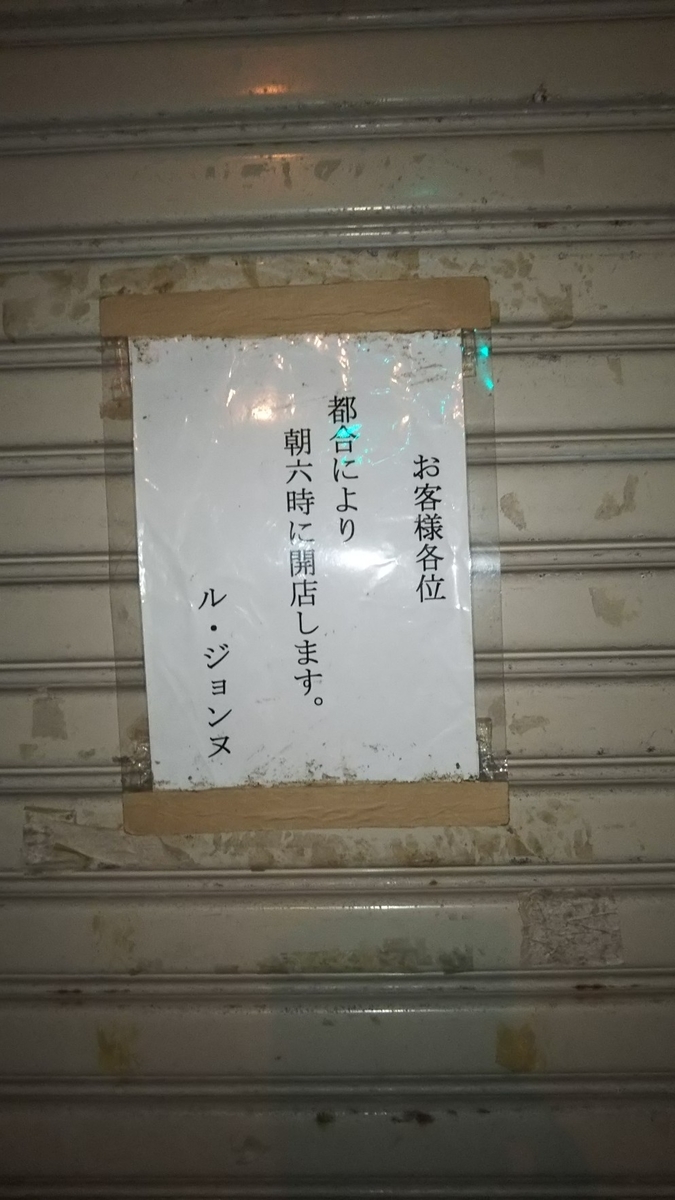 お客様各位
都合により
朝六時に開店します。
ル・ジョンヌ